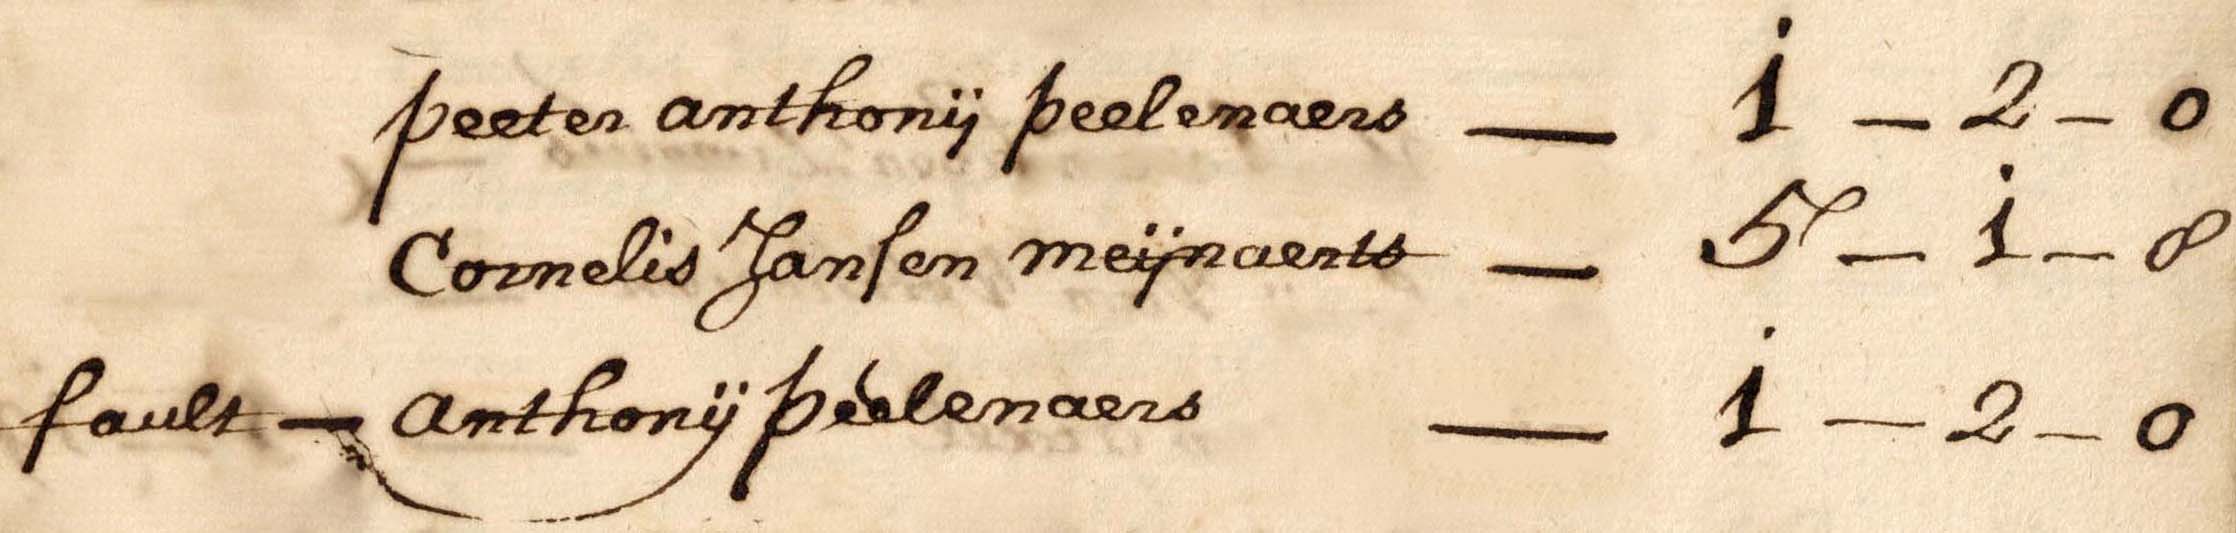 peeter anthonij peelenaers — 1 – 2 – 0
Cornelis Jansen meijnaerts — 5 – 1 – 8
fault — anthonij peelenaers — 1 – 2 – 0